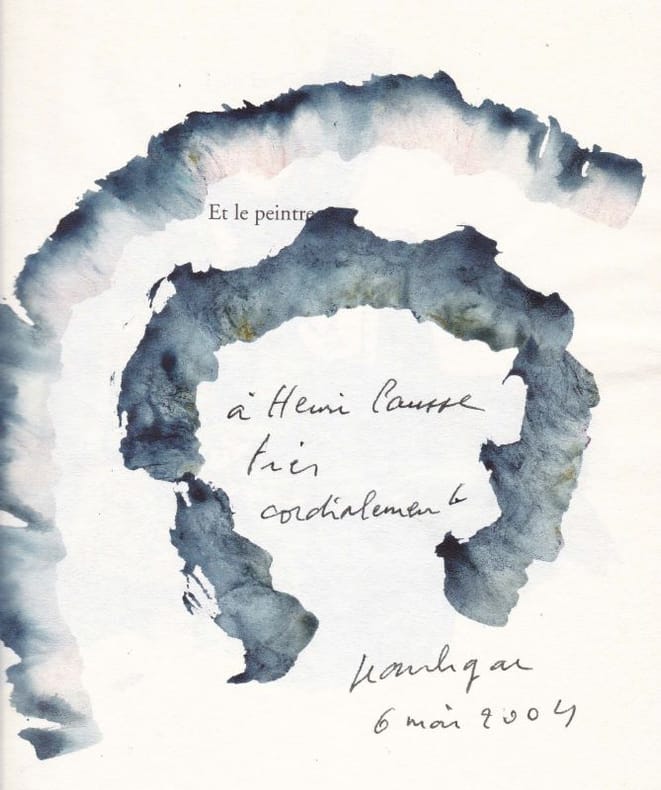 Et le peintre
à Henri Causse
très
cordialement
6 mai 2004